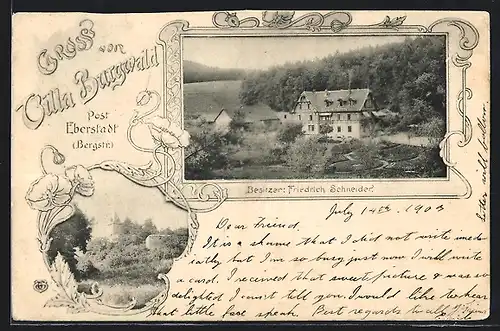 Gruss von
Villa Burgwald
Post
Eberstadt
(Bergstr.)
Besitzer: Friedrich Schneider.
July 14th. 1903
Dear Friend.
It is a shame that I did not write
but I'm so busy just now I will write
a card. I received that sweet picture & was so
delighted I can't tell you. I would like to hear
that little face speak. Best regards to all
Letter will follow.